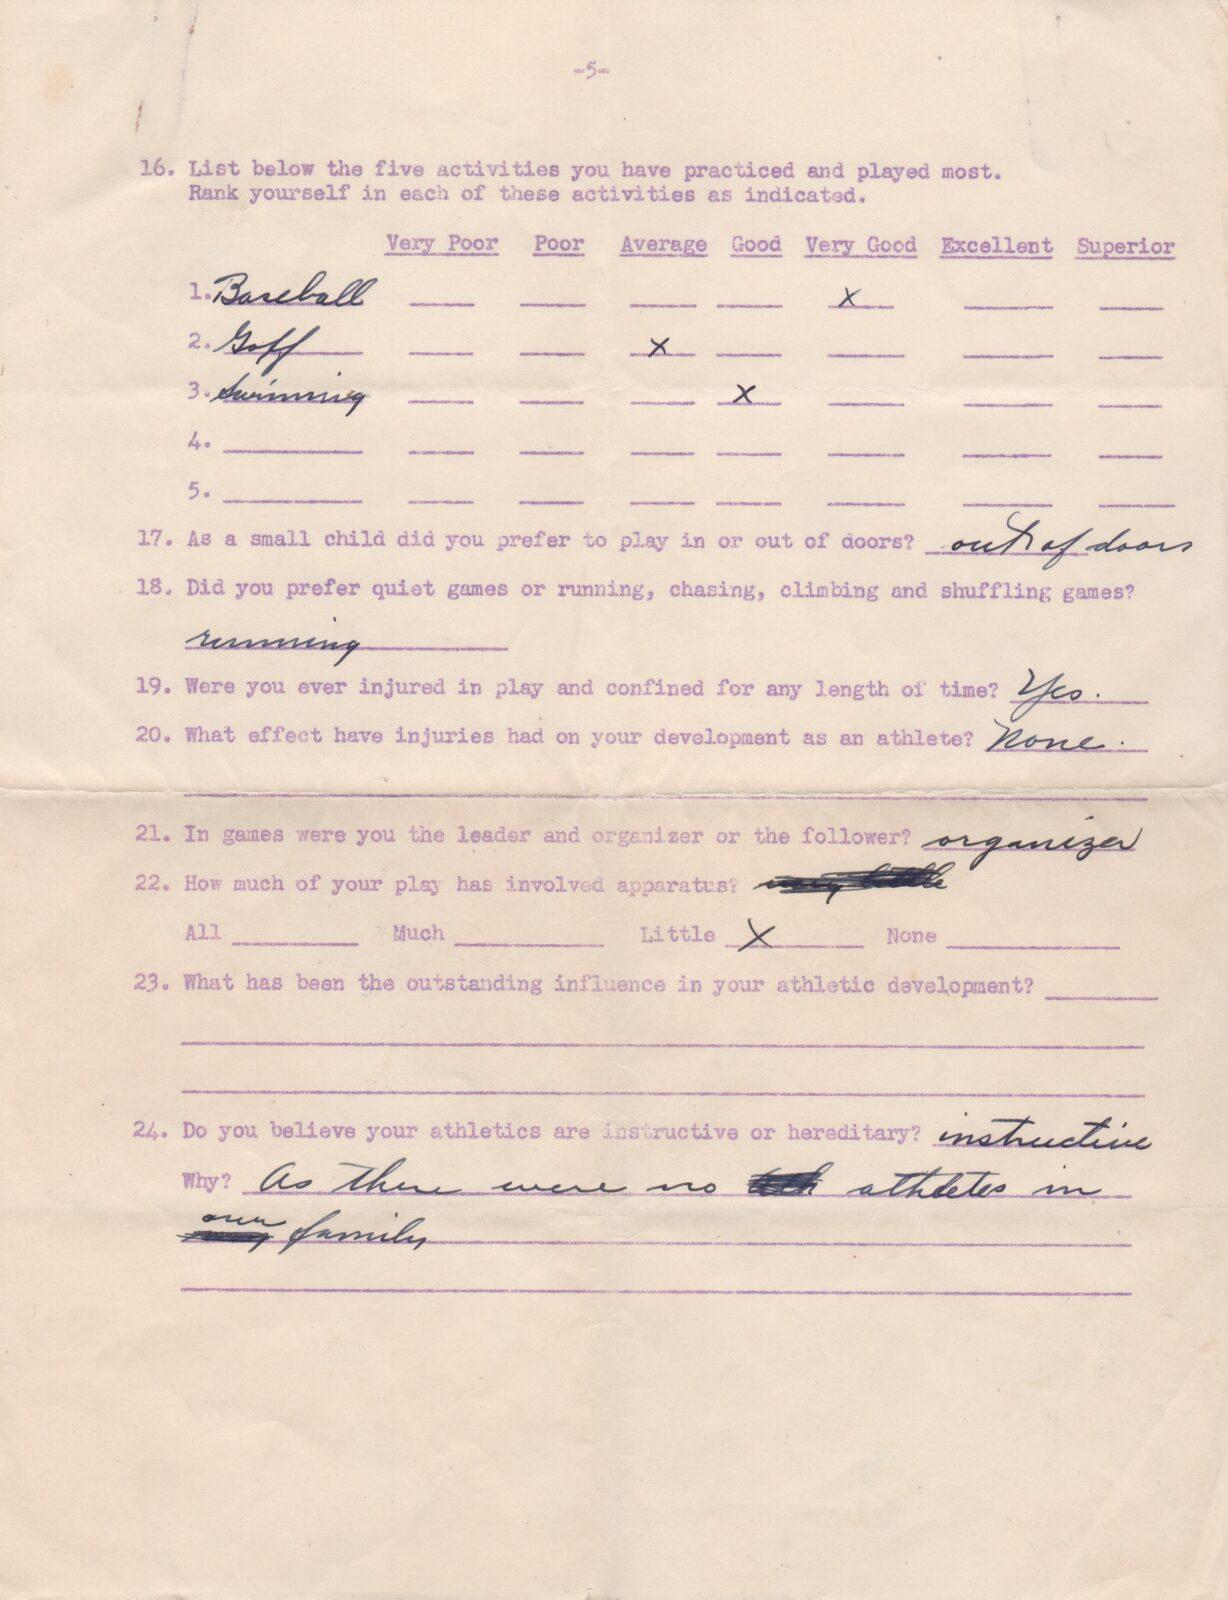 -5-
16. List below the five activities you have practiced and played most.
Rank yourself in each of these activities as indicated.
Very Poor Poor Average Good Very Good Excellent Superior
1. Baseball ____ ____ ____ ____ X ____ ____
2. Golf ____ ____ X ____ ____ ____ ____
3. Swimming ____ ____ ____ X ____ ____ ____
4. ____ ____ ____ ____ ____ ____ ____ ____
5. ____ ____ ____ ____ ____ ____ ____ ____
17. As a small child did you prefer to play in or out of doors? out of doors
18. Did you prefer quiet games or running, chasing, climbing and shuffling games?
running
19. Were you ever injured in play and confined for any length of time? Yes.
20. What effect have injuries had on your development as an athlete? None.
21. In games were you the leader and organizer or the follower? organizer
22. How much of your play has involved apparatus? very little
All ____ Much ____ Little X None ____
23. What has been the outstanding influence in your athletic development? ____
24. Do you believe your athletics are instructive or hereditary? instructive
Why? As there were no athletes in
our family